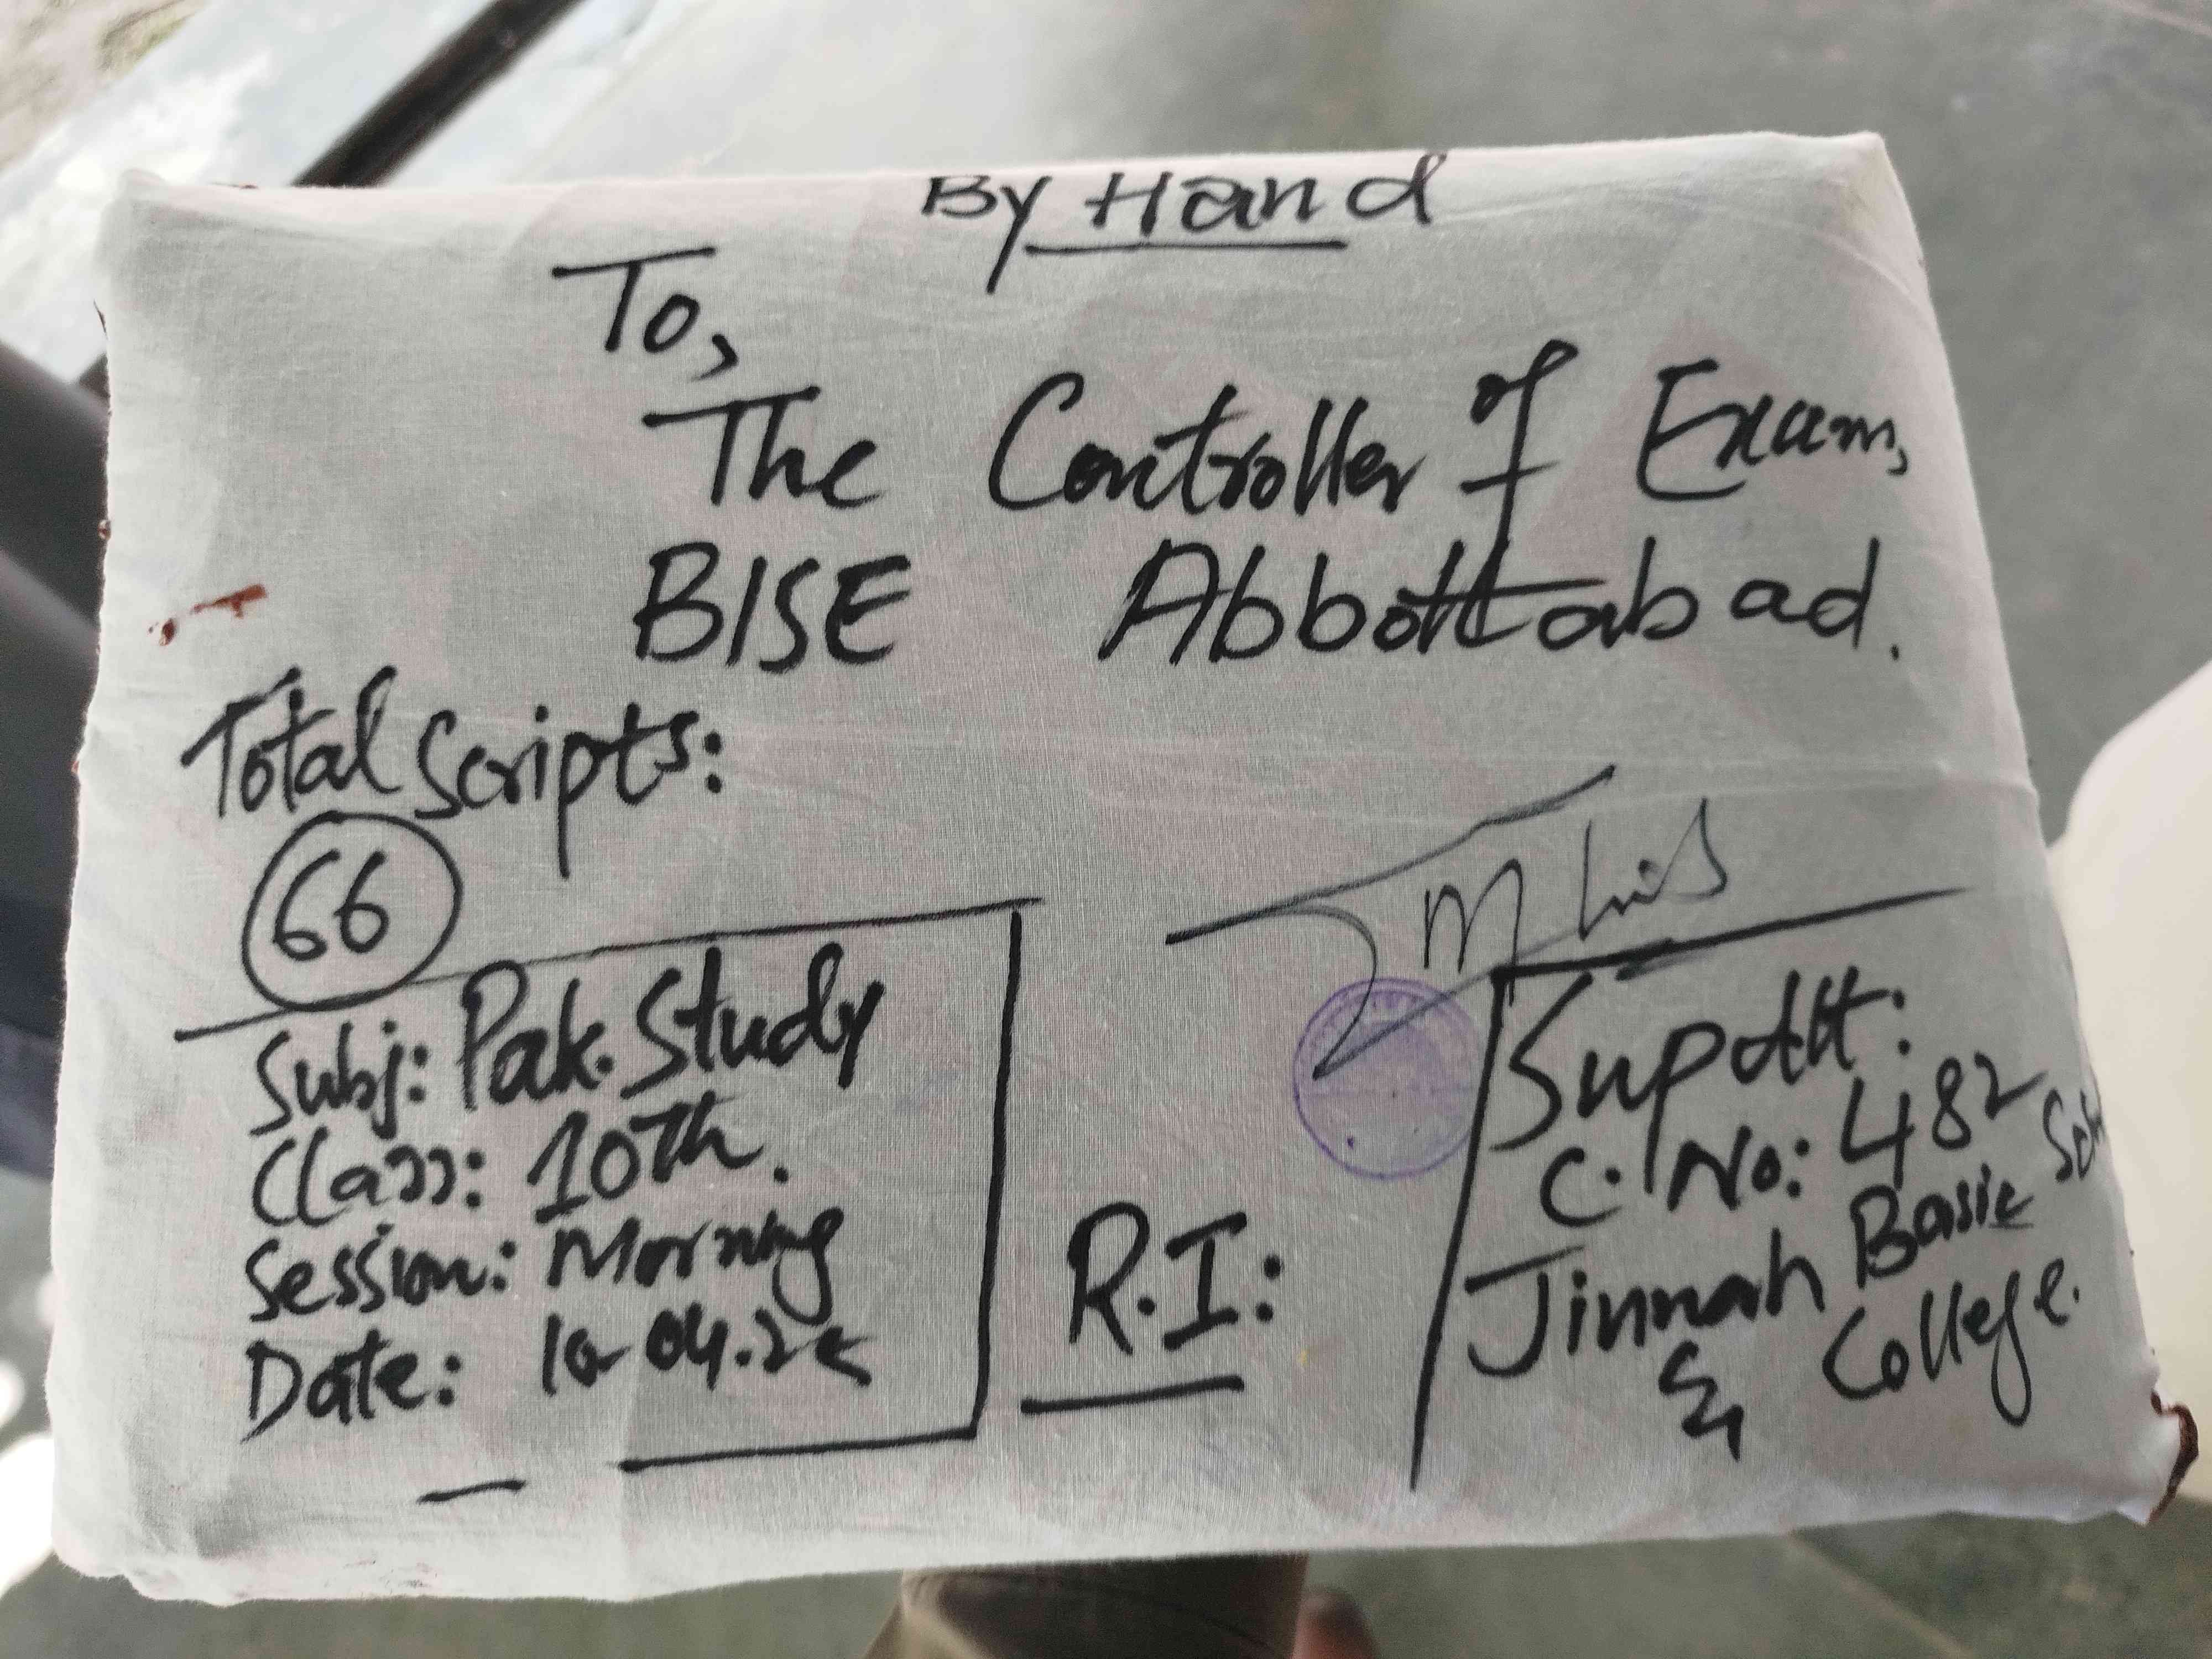 By Hand
To,
The Controller of Exam,
BISE Abbottabad.
Total Scripts:
66
Subj: Pak. Study
Class: 10th.
Session: Morning
Date:
R.I:
Supdtt:
C. No: 482
Jinnah Basic
& College.